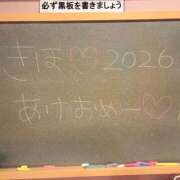 必ず黒板を書きましょう
きほ♡2026
あけおめー♡